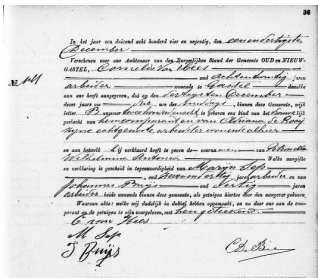 36
In het jaar een duizend acht honderd vier en negentig, den eenendertigsten
December
Verscheen voor ons Ambtenaar van den Burgerlijken Stand der Gemeente OUD en NIEUW-
GASTEL, Cornelis van Hees
oud achtentwintig jaren
arbeider wonende te Gastel
die ons heeft aangegeven, dat op den dertigsten December
dezes jaars ure des middags, binnen deze Gemeente, wijk
letter geboren is een kind van het
geslacht van hem comparant en van Adriana de Rooy
zijne echtgenoote arbeidster wonende alhier
en aan hetwelk hij verklaard heeft te geven de voornamen van Petronella
Wilhelmina Antonia Welke aangifte
en verklaring is geschied in tegenwoordigheid van Marijn Sep
oud jaren arbeider en van
Johannes Buijs oud dertig jaren
arbeider beide wonende binnen deze gemeente, als getuigen hiertoe door den aangever gekozen.
Waarvan akte: welke wij dadelijk in dubbel hebben opgemaakt, en na door ons aan de com-
parant en de getuigen te zijn voorgelezen, met hen geteekend.
C van Hees
M Sep
J Buijs